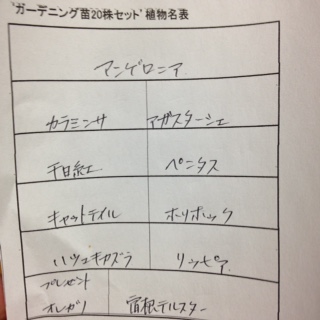 "ガーデニング苗20株セット"植物名表
アンゲロニア
カラミンサ
アガスターシェ
千日紅
ペンタス
キャットテイル
ホリホック
ハツユキカズラ
リッピア
プレゼント
オレガノ
宿根テルスター